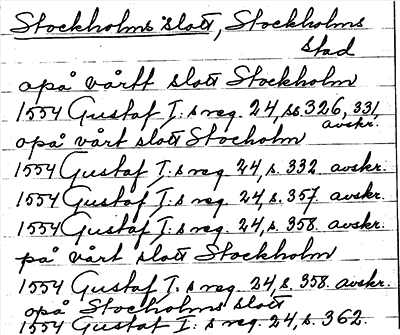 Stockholms slott, Stockholms
stad
opå vårtt slott Stockholm
1554 Gustaf I:s reg. 24, ss. 326, 331,
avskr.
opå vårt slott Stocholm
1554 Gustaf I:s reg. 24, s. 332. avskr.
1554 Gustaf I:s reg. 24, s. 357. avskr.
1554 Gustaf I:s reg. 24, s. 358. avskr.
på vårt slott Stockholm
1554 Gustaf I:s reg. 24, s. 358. avskr.
opå Stocholms slott
1554 Gustaf I:s reg. 24, s. 362.